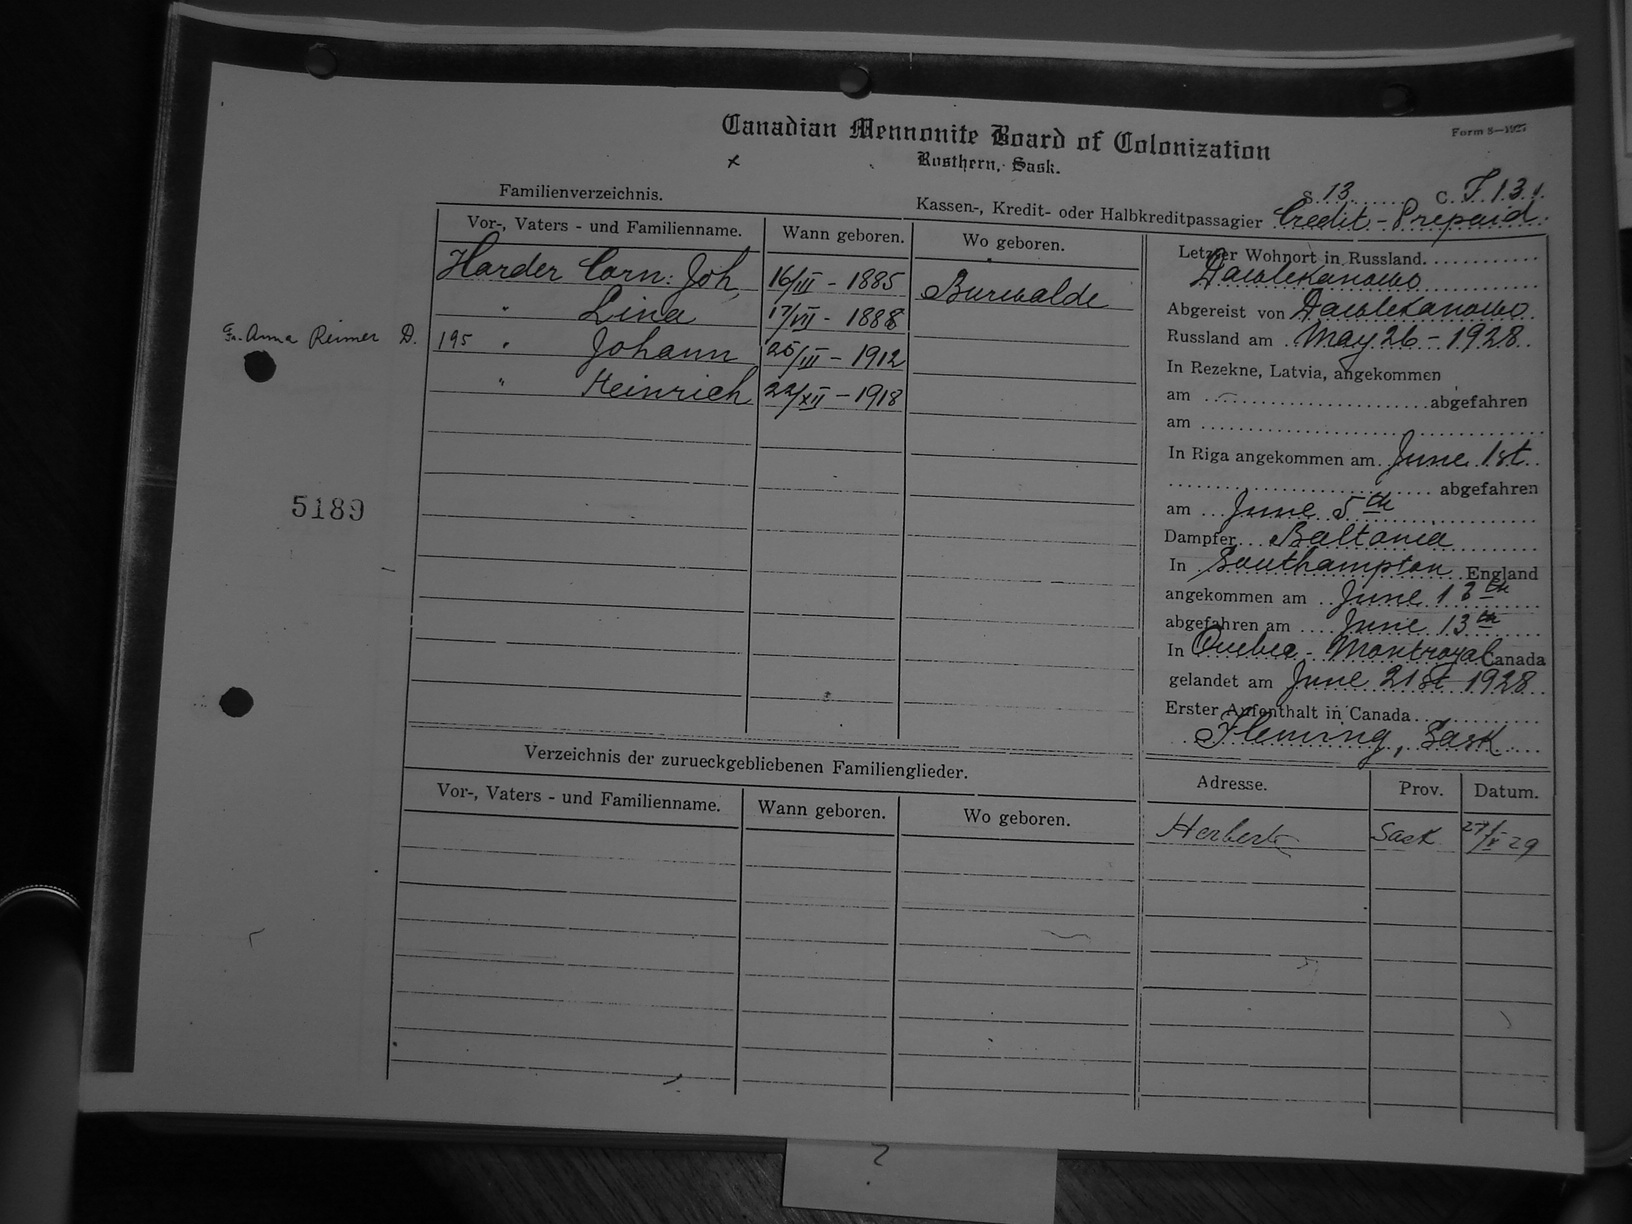 Canadian Mennonite Board of Colonization
Form 8—1927
Rosthern, Sask.
x
S. 13 C. F. 131.
Familienverzeichnis.
Kassen-, Kredit- oder Halbkreditpassagier Credit - Prepaid.
Vor-, Vaters - und Familienname. Wann geboren. Wo geboren.
Harder Corn: Joh. 16/III - 1885 Burwalde
" Lina 17/VII - 1888
Fr. Anna Reimer D. 195 " Johann 25/III - 1912
" Heinrich 22/XII - 1918
5189
Letzter Wohnort in Russland
Dawlekanowo
Abgereist von Dawlekanowo.
Russland am May 26 - 1928.
In Rezekne, Latvia, angekommen
am abgefahren
am
In Riga angekommen am June 1st.
abgefahren
am June 5th
Dampfer Baltania
In Southampton England
angekommen am June 12th
abgefahren am June 13th
In Quebec - Montroyal Canada
gelandet am June 21st 1928.
Erster Aufenthalt in Canada
Fleming, Sask
Verzeichnis der zurueckgebliebenen Familienglieder.
Vor-, Vaters - und Familienname. Wann geboren. Wo geboren.
Adresse. Prov. Datum.
Herbert Sask 27/V 29
?